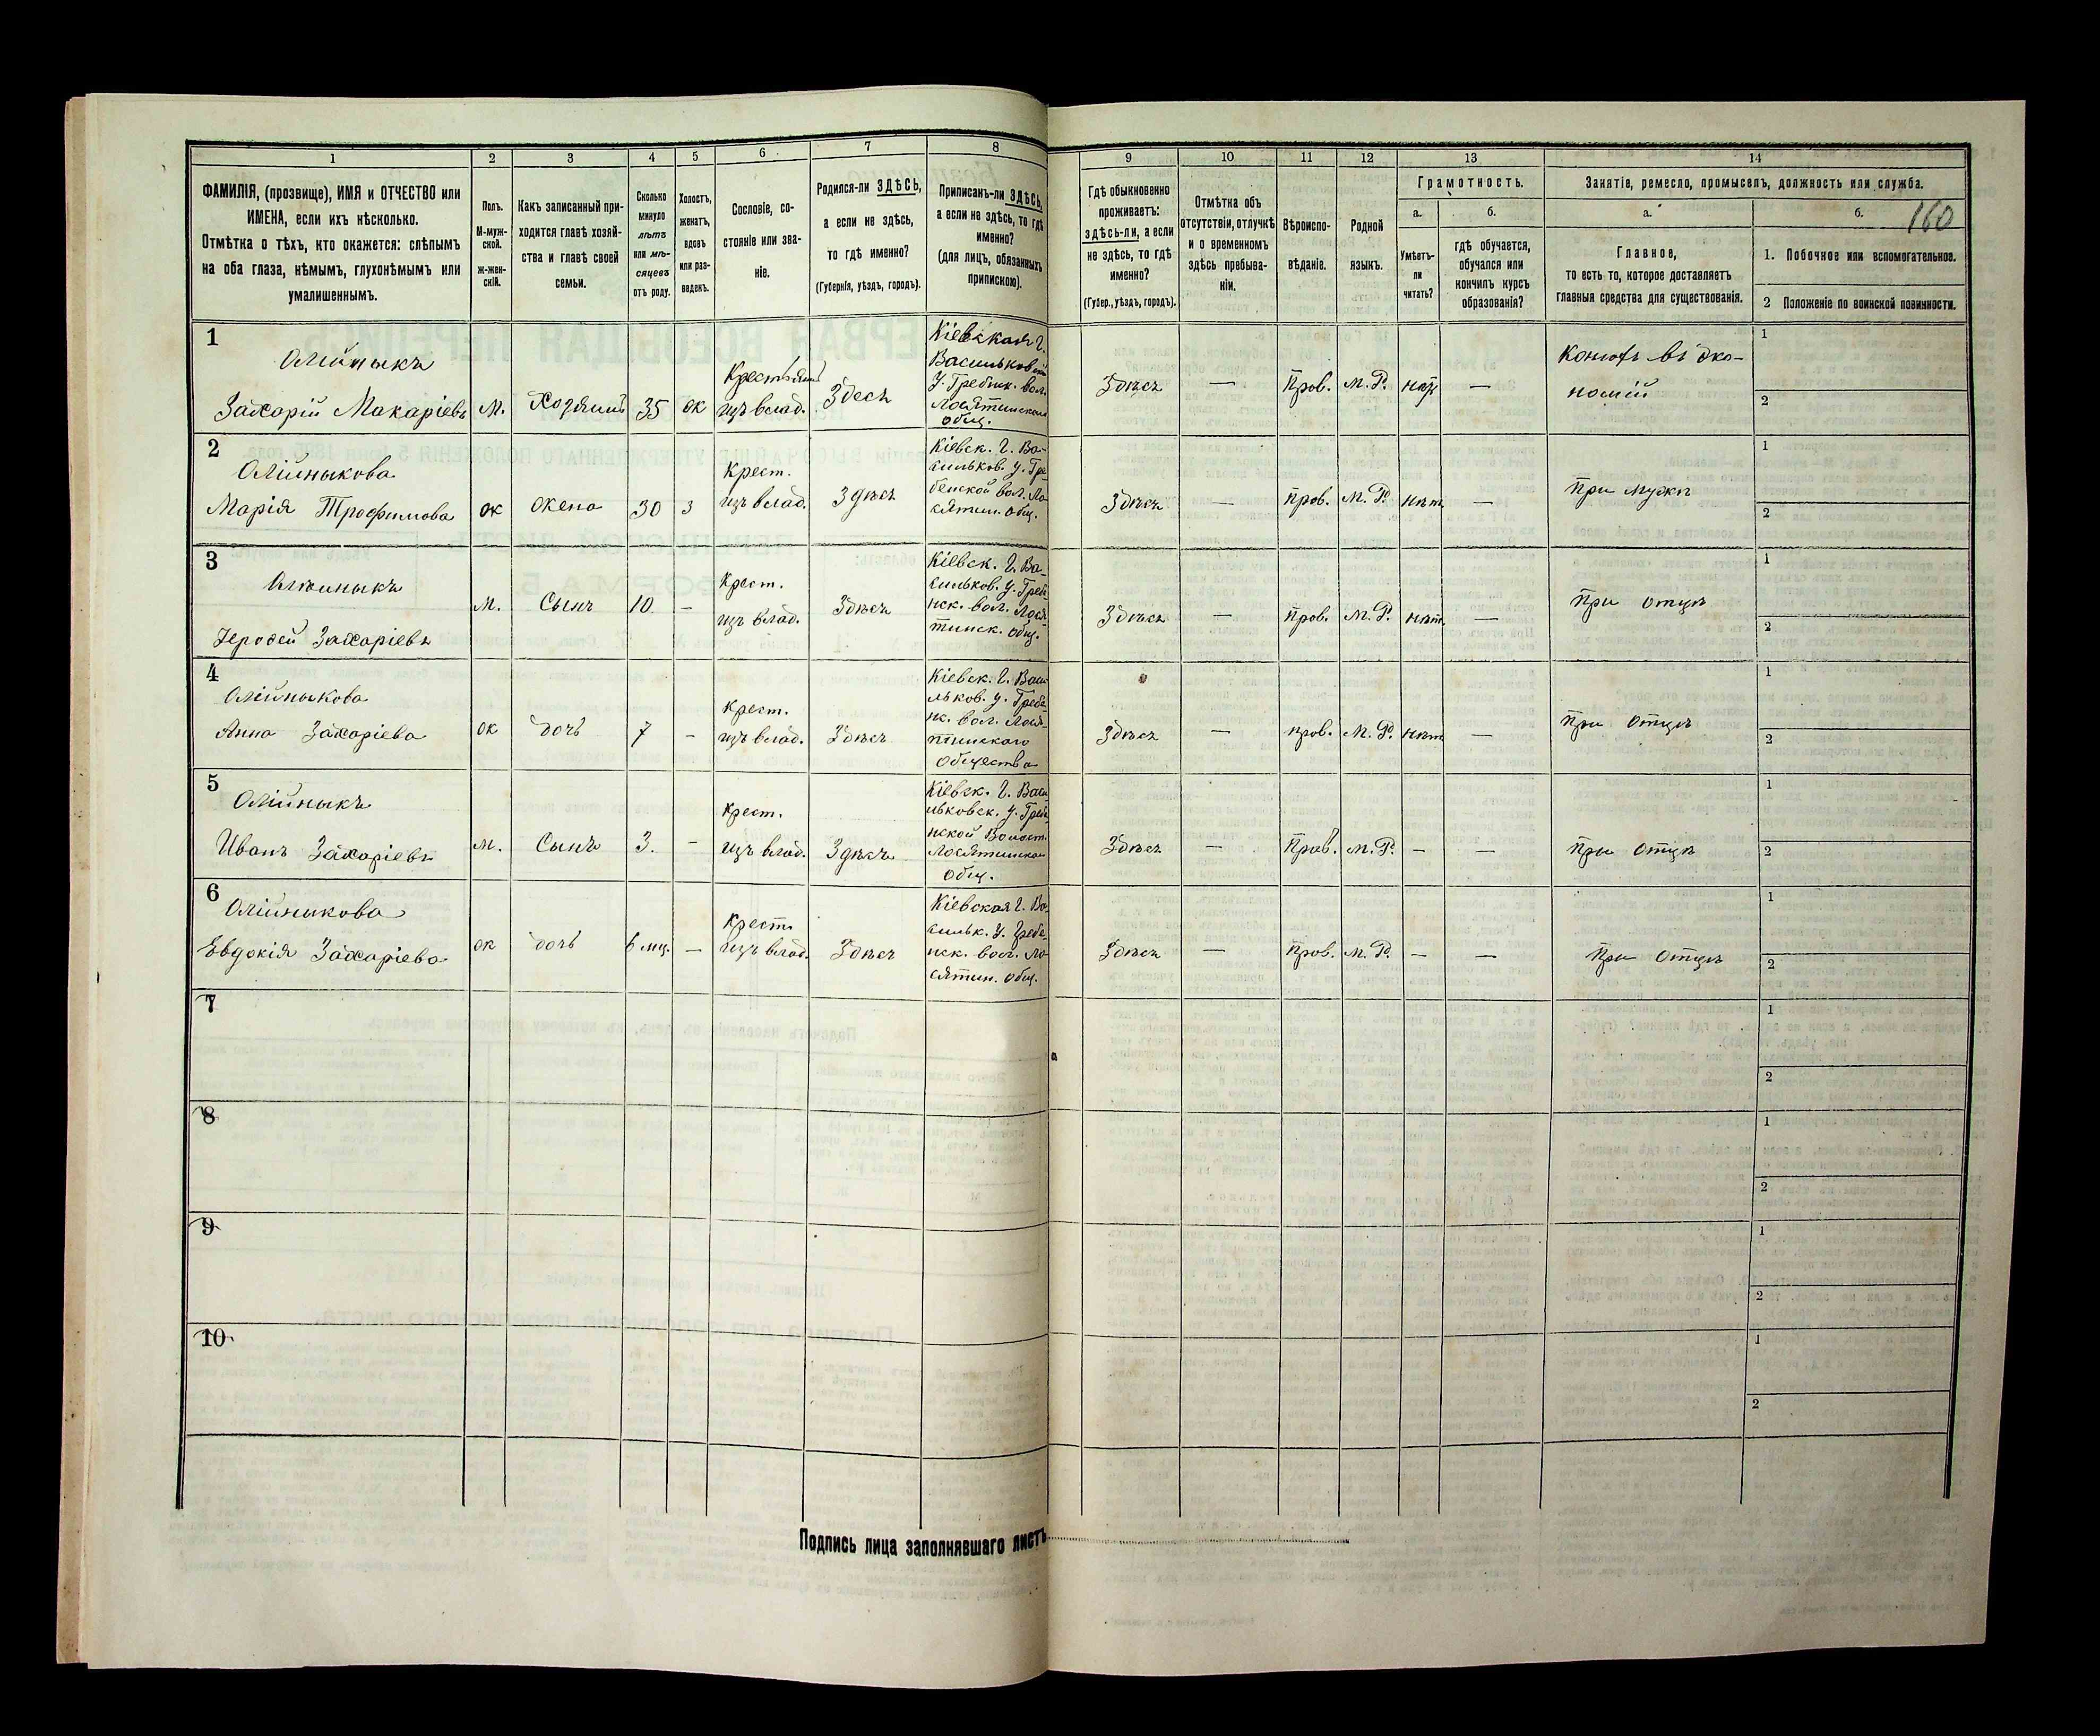 1 2 3 4 5 6 7 8 9 10 11 12 13 14
ФАМИЛІЯ, (прозвище), ИМЯ и ОТЧЕСТВО или
ИМЕНА, если ихъ нѣсколько.
Отмѣтка о тѣхъ, кто окажется: слѣпымъ
на оба глаза, нѣмымъ, глухонѣмымъ или
умалишеннымъ.
Полъ.
М-муж-
ской.
ж-жен-
скій.
Какъ записанный при-
ходится главѣ хозяй-
ства и главѣ своей
семьи.
Сколько
минуло
лѣтъ
или мѣ-
сяцевъ
отъ роду.
Холостъ,
женатъ,
вдовъ
или раз-
веденъ.
Сословіе, со-
стояніе или зва-
ніе.
Родился-ли ЗДѢСЬ,
а если не здѣсь,
то гдѣ именно?
(Губернія, уѣздъ, городъ).
Приписанъ-ли ЗДѢСЬ,
а если не здѣсь, то гдѣ
именно?
(для лицъ, обязанныхъ
припискою).
Гдѣ обыкновенно
проживаетъ:
здѣсь-ли, а если
не здѣсь, то гдѣ
именно?
(Губер., уѣздъ, городъ).
Отмѣтка объ
отсутствіи, отлучкѣ
и о временномъ
здѣсь пребыва-
ніи.
Вѣроиспо-
вѣданіе.
Родной
языкъ.
Грамотность.
а.
Умѣетъ-
ли
читать?
б.
гдѣ обучается,
обучался или
кончилъ курсъ
образованія?
Занятіе, ремесло, промыселъ, должность или служба.
а.
Главное,
то есть то, которое доставляетъ
главныя средства для существованія.
б.
160
1. Побочное или вспомогательное.
2 Положеніе по воинской повинности.
1
Олійныкъ
Захарій Макаріевъ
м.
Хозяинъ
35
ж
Крестьянинъ
изъ влад.
Здесь
Кіевская г.
Васильковскій
у. Гребинк. вол.
Лосятинского
общ.
Здѣсь
—
Прав.
М. Р.
нѣтъ
—
Конюхъ въ эко-
номіи
1
2
2
Олійныкова
Марія Трофимова
ж
жена
30
з
Крест.
изъ влад.
Здѣсь
Кіевск. г. Ва-
сильков. у. Гре-
бенской вол. Ло-
сятин. общ.
Здѣсь
—
прав.
М. Р.
нѣт
—
При мужѣ
1
2
3
Олійныкъ
Іеродей Захаріевъ
м.
Сынъ
10
—
Крест.
изъ влад.
Здѣсь
Кіевск. г. Ва-
сильков. у. Греби-
нск. вол. Лося-
тинск. общ.
Здѣсь
—
прав.
М. Р.
нѣт.
—
При отцѣ
1
2
4
Олійныкова
Анна Захаріева
ж
дочь
7
—
Крест.
изъ влад.
Здѣсь
Кіевск. г. Васи-
льков. у. Гребе-
нк. вол. Лося-
тинского
общества
Здѣсь
—
прав.
М. Р.
нѣт
—
При отцѣ
1
2
5
Олійныкъ
Иванъ Захаріевъ
м.
Сынъ
3.
—
Крест.
изъ влад.
Здѣсь
Кіевск. г. Васи-
льковск. у. Греби-
нской Волост.
Лосятинского
общ.
Здѣсь
—
Прав.
М. Р.
—
—
При отцѣ
1
2
6
Олійныкова
Евдокія Захаріева
ж
дочь
6 мц.
—
Крест.
изъ влад.
Здѣсь
Кіевская г. Ва-
сильк. у. Гребе-
нск. вол. Ло-
сятин. общ.
Здѣсь
—
прав.
М. Р.
—
—
При отцѣ
1
2
7
1
2
8
1
2
9
1
2
10
1
2
Подпись лица заполнявшаго листъ